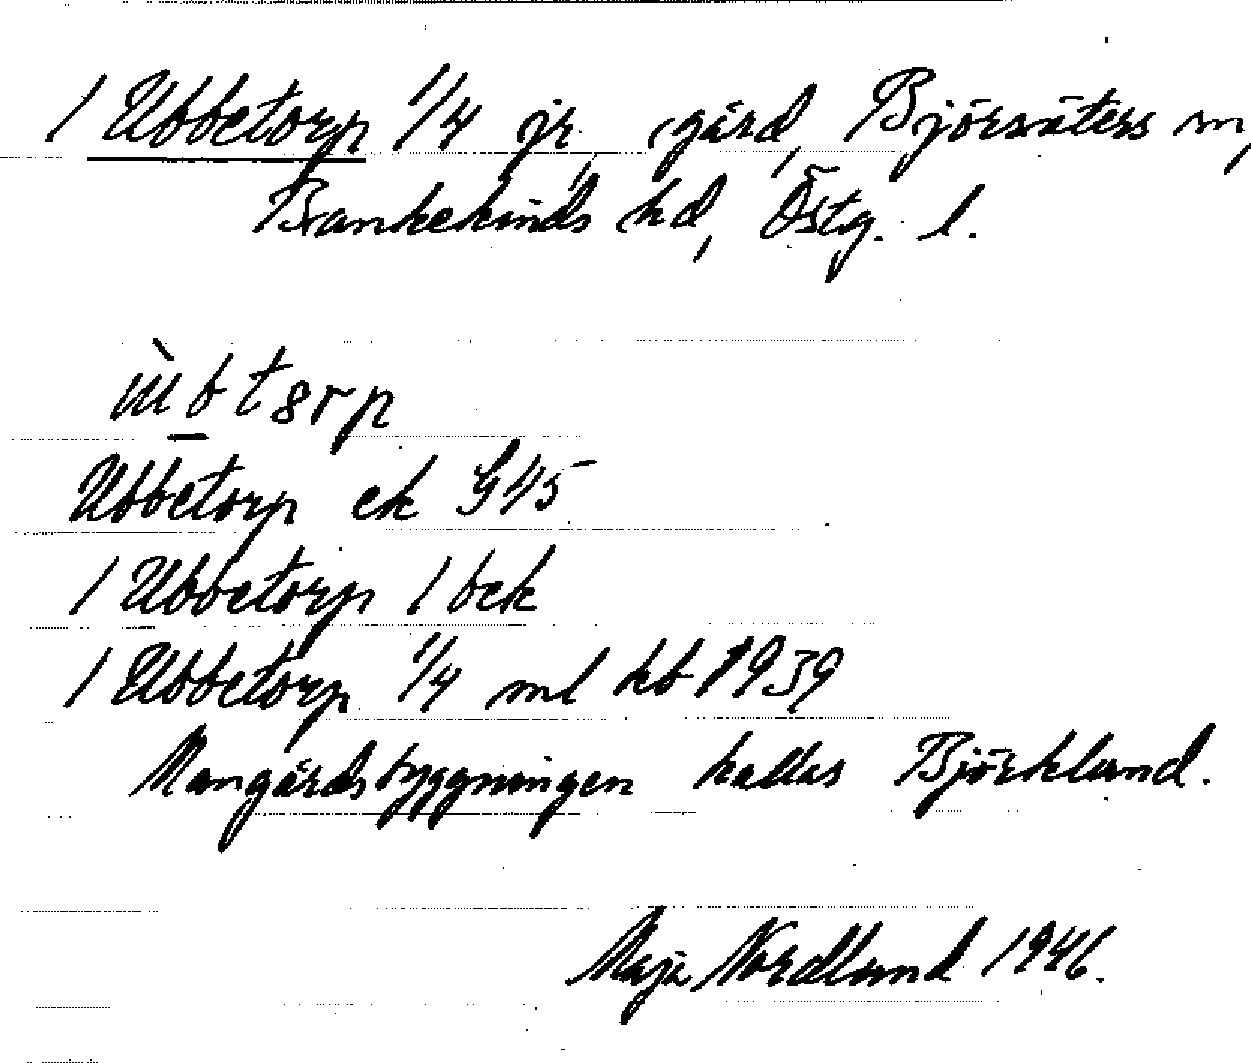 1 Ubbetorp 1/4 jr, gård, Björsäters sn,
Bankekinds hd, Östg. l.
ùbtorp
Ubbetorp ek G45
1 Ubbetorp 1 bek
1 Ubbetorp 1/4 ml kb 1939
Mangårdsbyggningen kallas Björklund.
Maja Nordlund 1946.